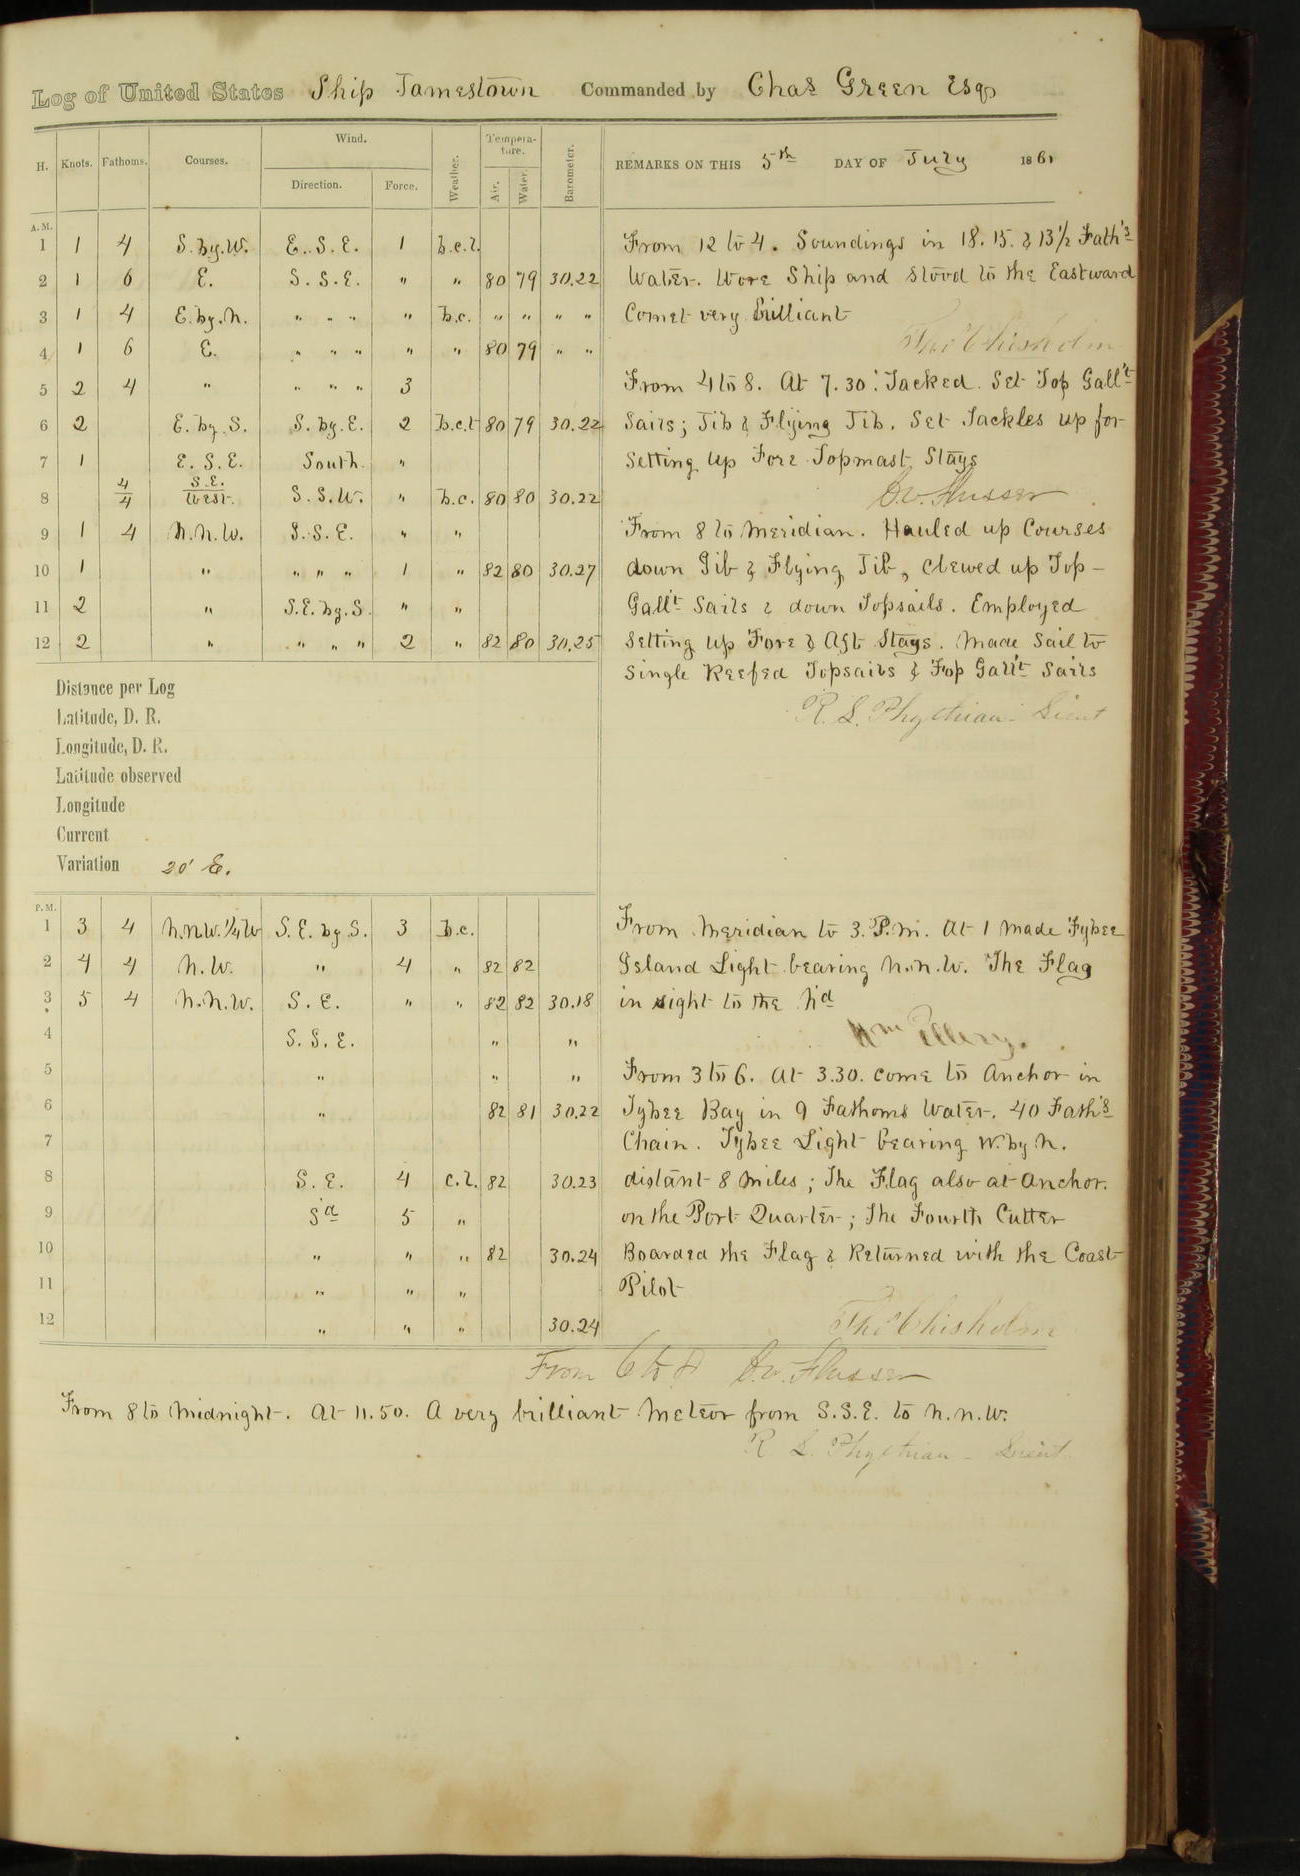 Log of United States Ship Jamestown Commanded by Chas Green Esqr
H. Knots. Fathoms. Courses. Wind. Direction. Force. Weather. Tempera-ture. Air. Water. Barometer. REMARKS ON THIS 5th DAY OF July 1861
A.M.
1 1 4 S. by. W. E. S. E. 1 b.c.l.
2 1 6 E. S. S. E. " " 80 79 30.22
3 1 4 E. by. N. " " " " b.c. " " " "
4 1 6 E. " " " " " 80 79 " "
5 2 4 " " " " 3
6 2 E. by. S. S. by. E. 2 b.c.t 80 79 30.22
7 1 E. S. E. South. "
8 4/4 S.E./West. S. S. W. " b.c. 80 80 30.22
9 1 4 N. N. W. S. S. E. " "
10 1 " " " " 1 " 82 80 30.27
11 2 " S. E. by. S. " "
12 2 " " " " 2 " 82 80 30.25
From 12 to 4. Soundings in 18. 15. & 13 1/2 Fath's
Water. Wore Ship and stood to the Eastward
Comet very brilliant
Tho Chisholm
From 4 to 8. At 7.30. Tacked. Set Top Gall't
Sails; Jib & Flying Jib. Set Tackles up for
setting up Fore Topmast Stays
C. W. Flusser
From 8 to Meridian. Hauled up Courses
down Jib & Flying Jib, clewed up Top-
Gall't Sails & down Topsails. Employed
setting up Fore & Aft Stays. Made Sail to
Single Reefed Topsails & Top Gall't Sails
R. L. Phythian - Lieut
Distance per Log
Latitude, D. R.
Longitude, D. R.
Latitude observed
Longitude
Current
Variation 20' E.
P.M.
1 3 4 N.N.W. 1/4 W S. E. by. S. 3 b.c.
2 4 4 N. W. " 4 " 82 82
3 5 4 N. N. W. S. E. " " 82 82 30.18
4 S. S. E. " "
5 " " "
6 " 82 81 30.22
7
8 S. E. 4 c.l. 82 30.23
9 Sd 5 "
10 " " " 82 30.24
11 " " "
12 " " " 30.24
From Meridian to 3. P.M. At 1 made Tybee
Island Light bearing N.N.W. The Flag
in sight to the Nd
Wm Ellery.
From 3 to 6. At 3.30. come to Anchor in
Tybee Bay in 9 Fathoms Water. 40 Fath's
Chain. Tybee Light bearing W. by N.
distant 8 miles; The Flag also at Anchor.
on the Port Quarter; The Fourth Cutter
Boarded the Flag & Returned with the Coast
Pilot
Tho Chisholm
From 6 to 8 C. W. Flusser
From 8 to Midnight. At 11.50. A very brilliant Meteor from S.S.E. to N.N.W.
R. L. Phythian - Lieut